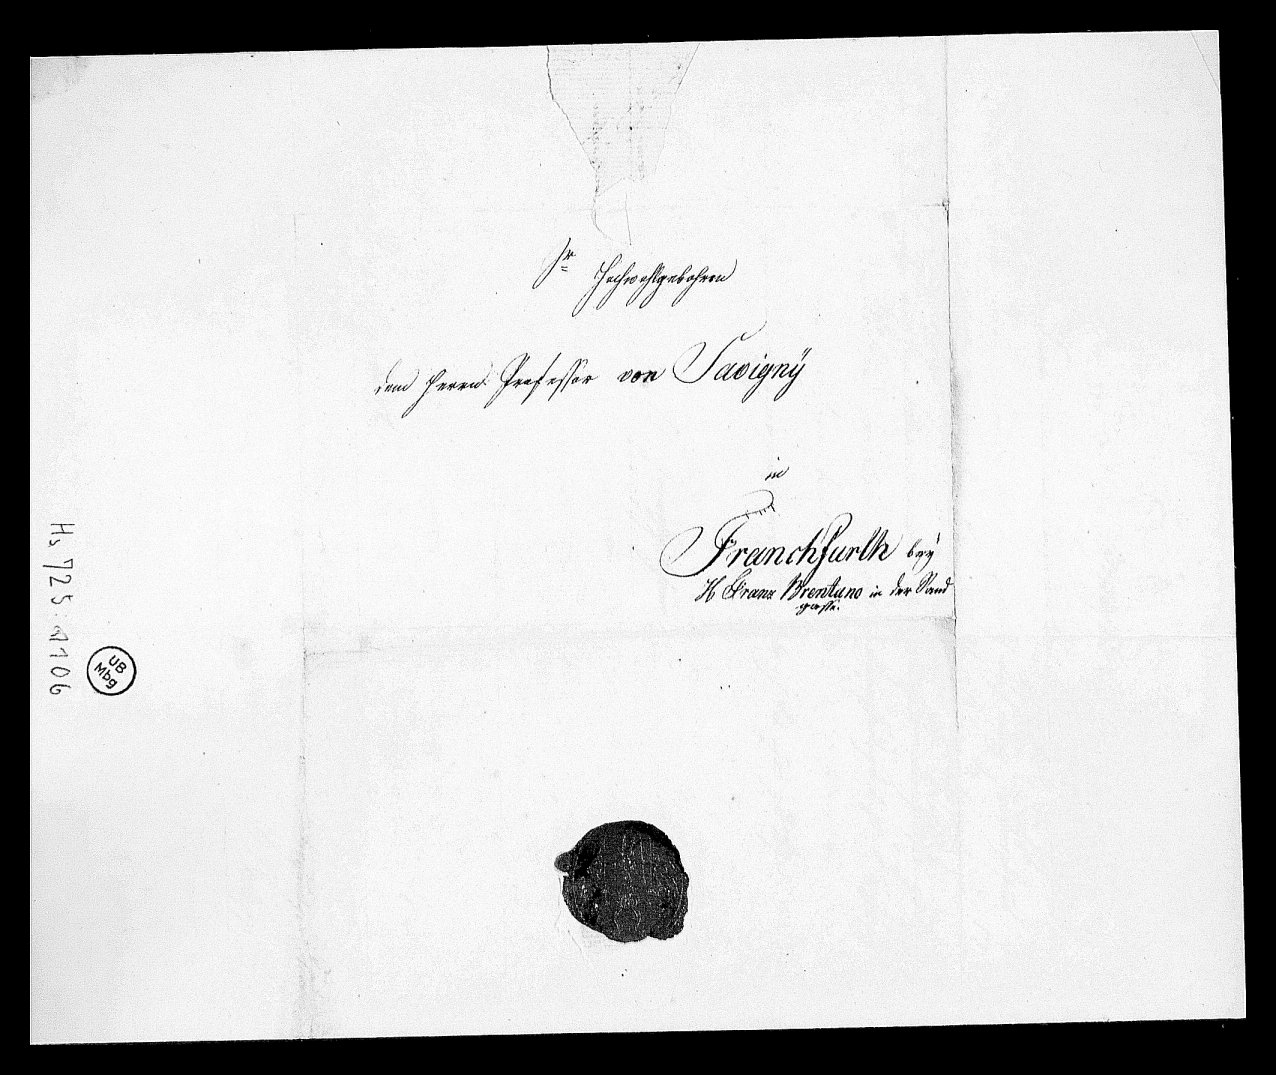 Sr Hochwohlgebohren
dem Herrn Professor von Savignÿ
in
Franckfurth beÿ
H Franz Brentano in der Sand
gasse.
Hs 725:1106
UB
Mbg